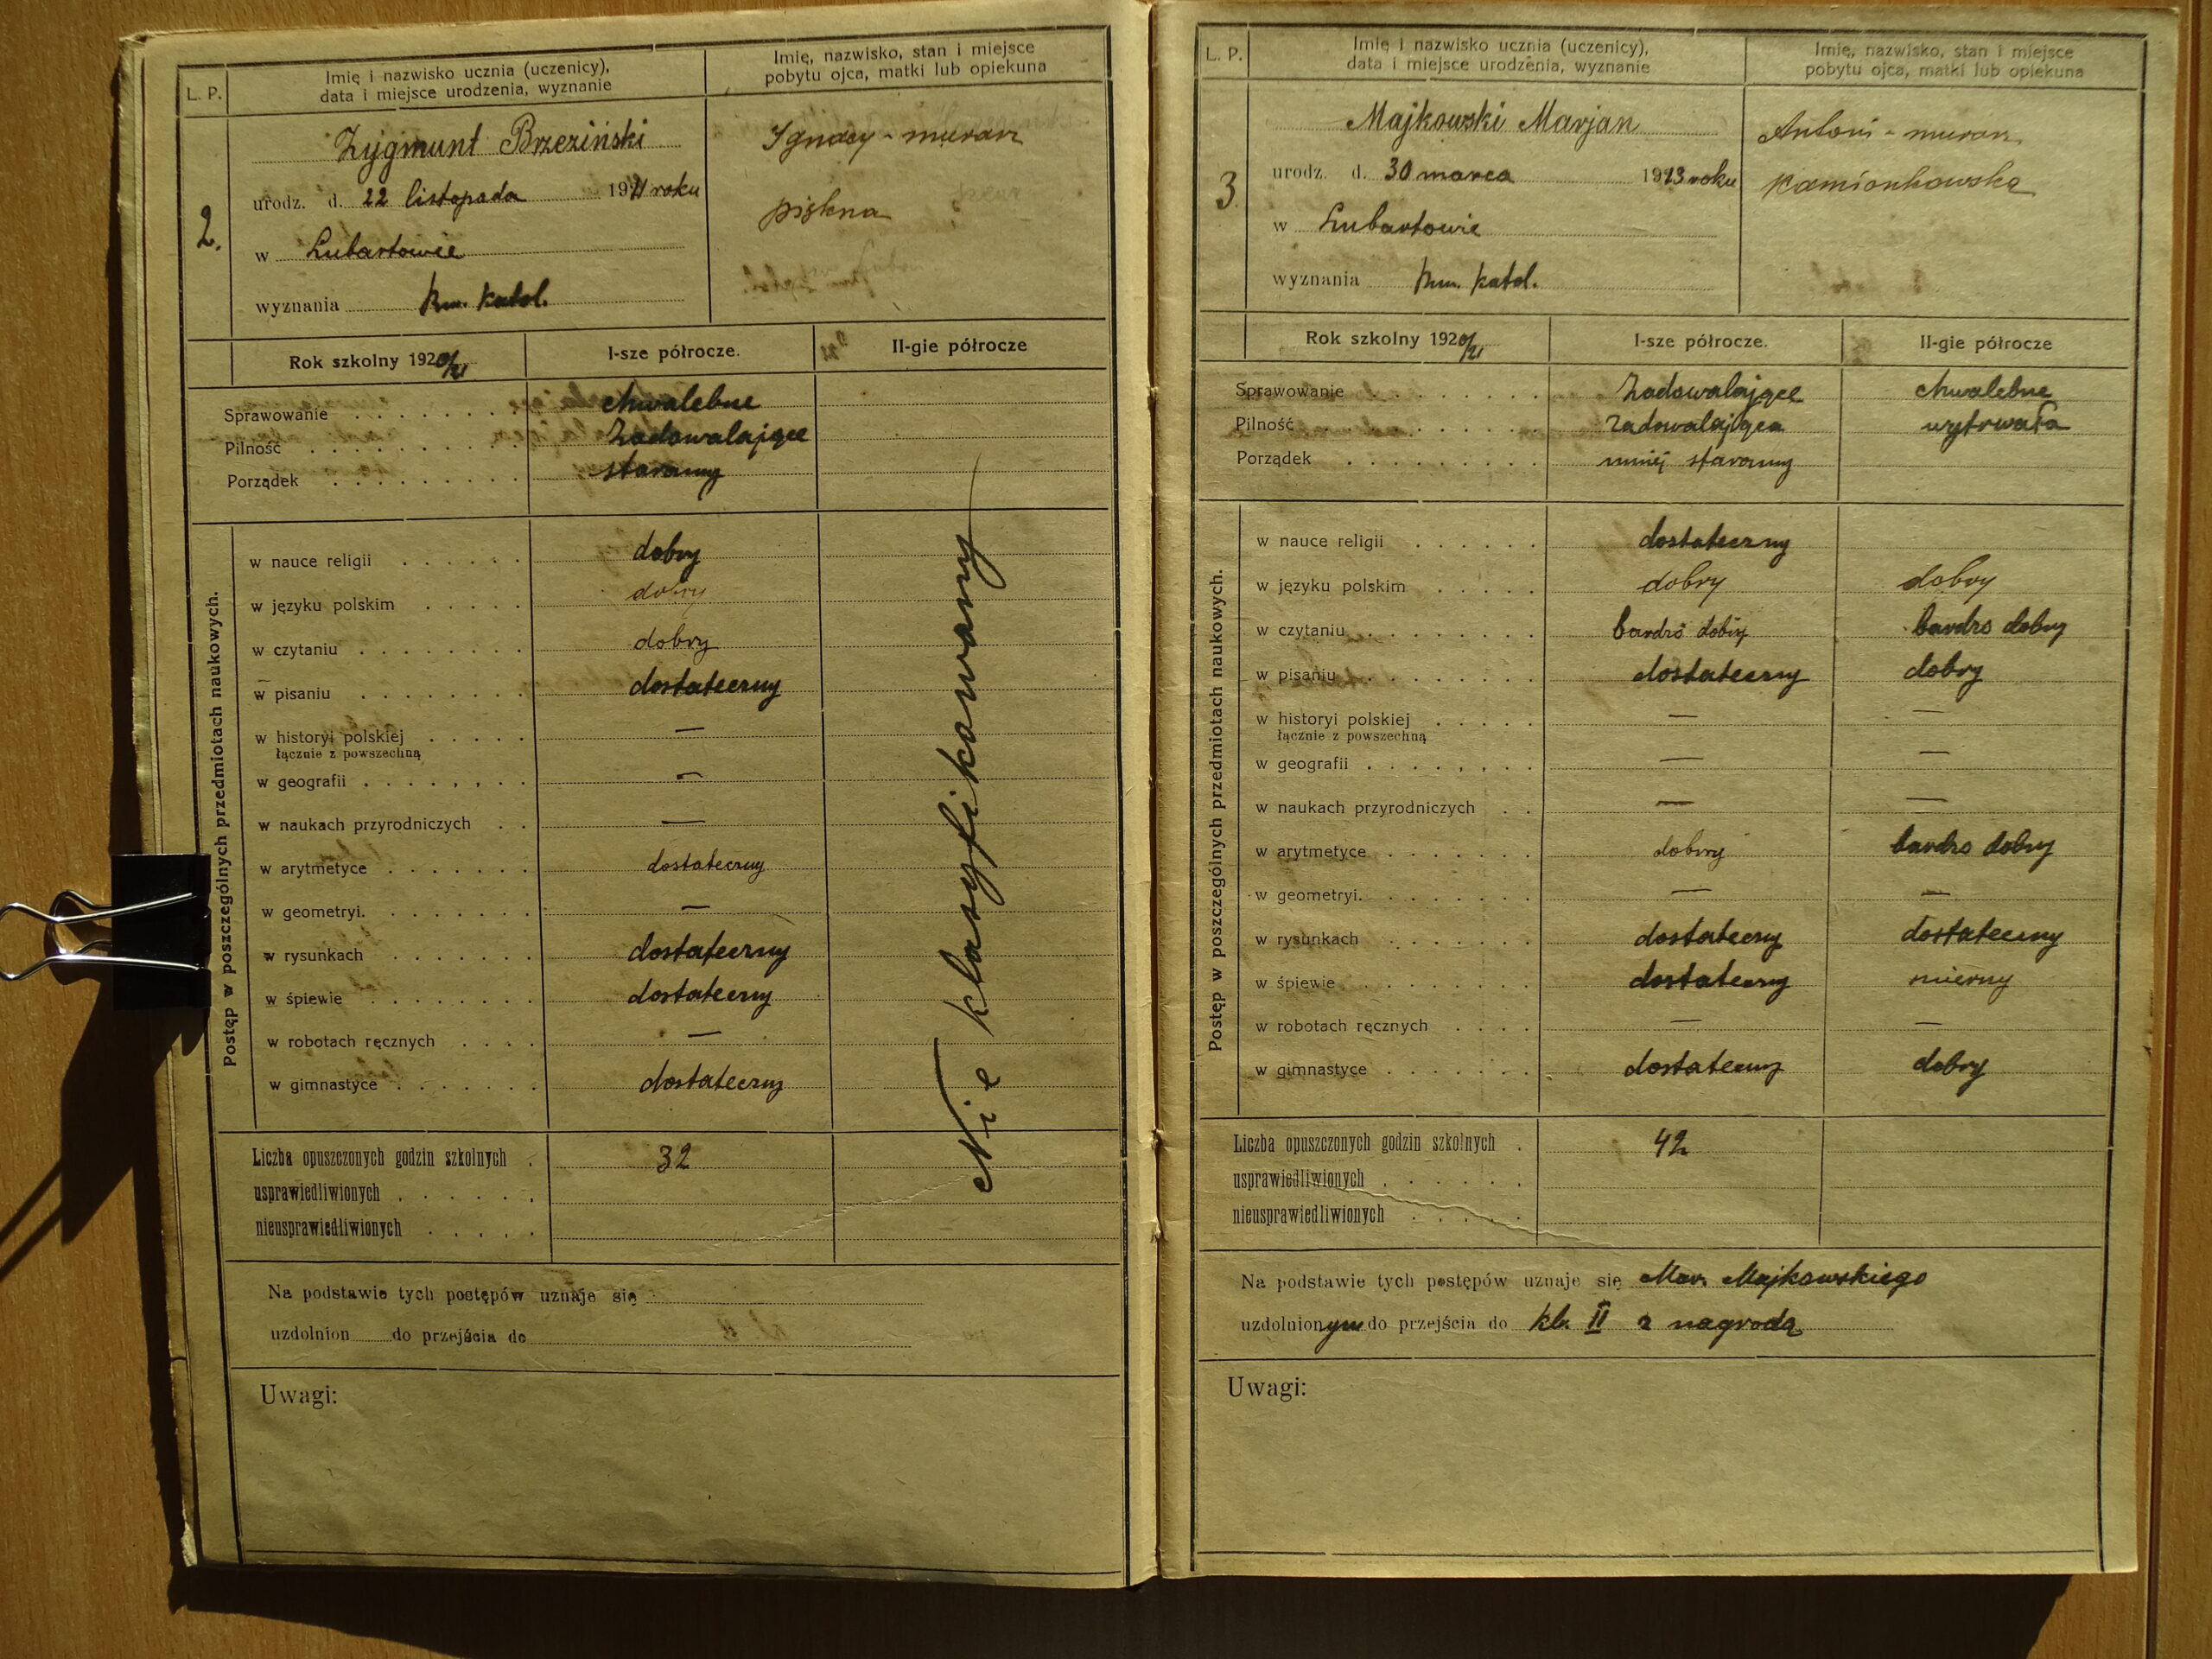 L. P.
Imię i nazwisko ucznia (uczenicy),
data i miejsce urodzenia, wyznanie
Imię, nazwisko, stan i miejsce
pobytu ojca, matki lub opiekuna
2.
Zygmunt Brzeziński
Ignacy - murarz
urodz. d. 22 listopada 1911 roku
piękna
w Lubartowie
wyznania Rzm. katol.
Rok szkolny 1920/21
I-sze półrocze.
II-gie półrocze
Sprawowanie chwalebne
Pilność zadowalające
Porządek staranny
Postęp w poszczególnych przedmiotach naukowych.
w nauce religii dobry
w języku polskim dobry
w czytaniu dobry
w pisaniu dostateczny
w historyi polskiej —
łącznie z powszechną
w geografii —
w naukach przyrodniczych —
w arytmetyce dostateczny
w geometryi. —
w rysunkach dostateczny
w śpiewie dostateczny
w robotach ręcznych —
w gimnastyce dostateczny
Nie klasyfikowany
Liczba opuszczonych godzin szkolnych 32
usprawiedliwionych
nieusprawiedliwionych
Na podstawie tych postępów uznaje się
uzdolnion do przejścia do
Uwagi:
L. P.
Imię i nazwisko ucznia (uczenicy),
data i miejsce urodzenia, wyznanie
Imię, nazwisko, stan i miejsce
pobytu ojca, matki lub opiekuna
3.
Majkowski Marjan
Antoni - murarz
urodz. d. 30 marca 1913 roku
Kamionkowska
w Lubartowie
wyznania Rzm. katol.
Rok szkolny 1920/21
I-sze półrocze.
II-gie półrocze
Sprawowanie zadowalające chwalebne
Pilność zadowalająca wytrwała
Porządek mniej staranny
Postęp w poszczególnych przedmiotach naukowych.
w nauce religii dostateczny
w języku polskim dobry dobry
w czytaniu bardzo dobry bardzo dobry
w pisaniu dostateczny dobry
w historyi polskiej — —
łącznie z powszechną
w geografii — —
w naukach przyrodniczych — —
w arytmetyce dobry bardzo dobry
w geometryi. — —
w rysunkach dostateczny dostateczny
w śpiewie dostateczny mierny
w robotach ręcznych — —
w gimnastyce dostateczny dobry
Liczba opuszczonych godzin szkolnych 42
usprawiedliwionych
nieusprawiedliwionych
Na podstawie tych postępów uznaje się Mar. Majkowskiego
uzdolnionym do przejścia do kl. II z nagrodą
Uwagi: